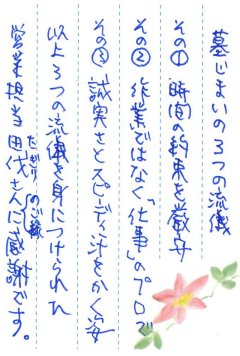 墓じまいの3つの流儀
その① 時間の約束を厳守
その② 作業ではなく「仕事」のプロで
その③ 誠実さとスピーディ汗をかく姿
以上3つの流儀を身につけられた
営業担当田伐さんに感謝です。
たぎり
のご縁